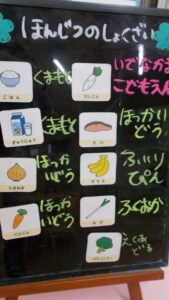 ほんじつのしょくざい
いでなかま
こどもえん
ごはん
くまもと
だいこん
ぎゅうにゅう
くまもと
さけ
ほっかい
どう
たまねぎ
ほっか
いどう
ばなな
ふぃり
ぴん
にんじん
ほっか
いどう
ねぎ
ふくおか
ブロッコリー
えくあ
どる